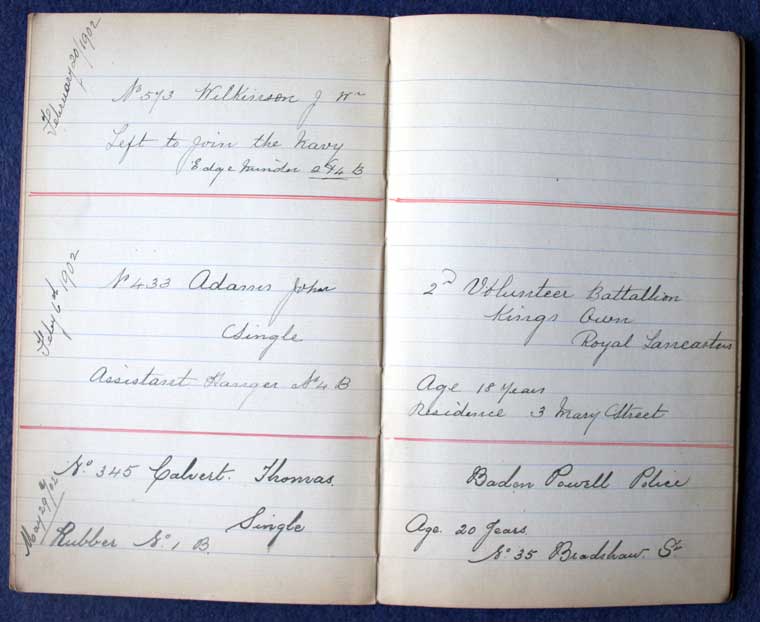 February 20/1902
No 573 Wilkinson J Wm
Left to join the Navy
Edge Minder No 4 B
Feby 6th 1902
No 433 Adams John
Single
Assistant Hanger No 4 B
May 29th/02
No 345 Calvert. Thomas.
Single
Rubber No. 1 B.
2nd Volunteer Battallion
Kings Own
Royal Lancasters
Age 18 years
Residence 3 Mary Street
Baden Powell Police
Age. 20 Years.
No 35 Bradshaw. St.